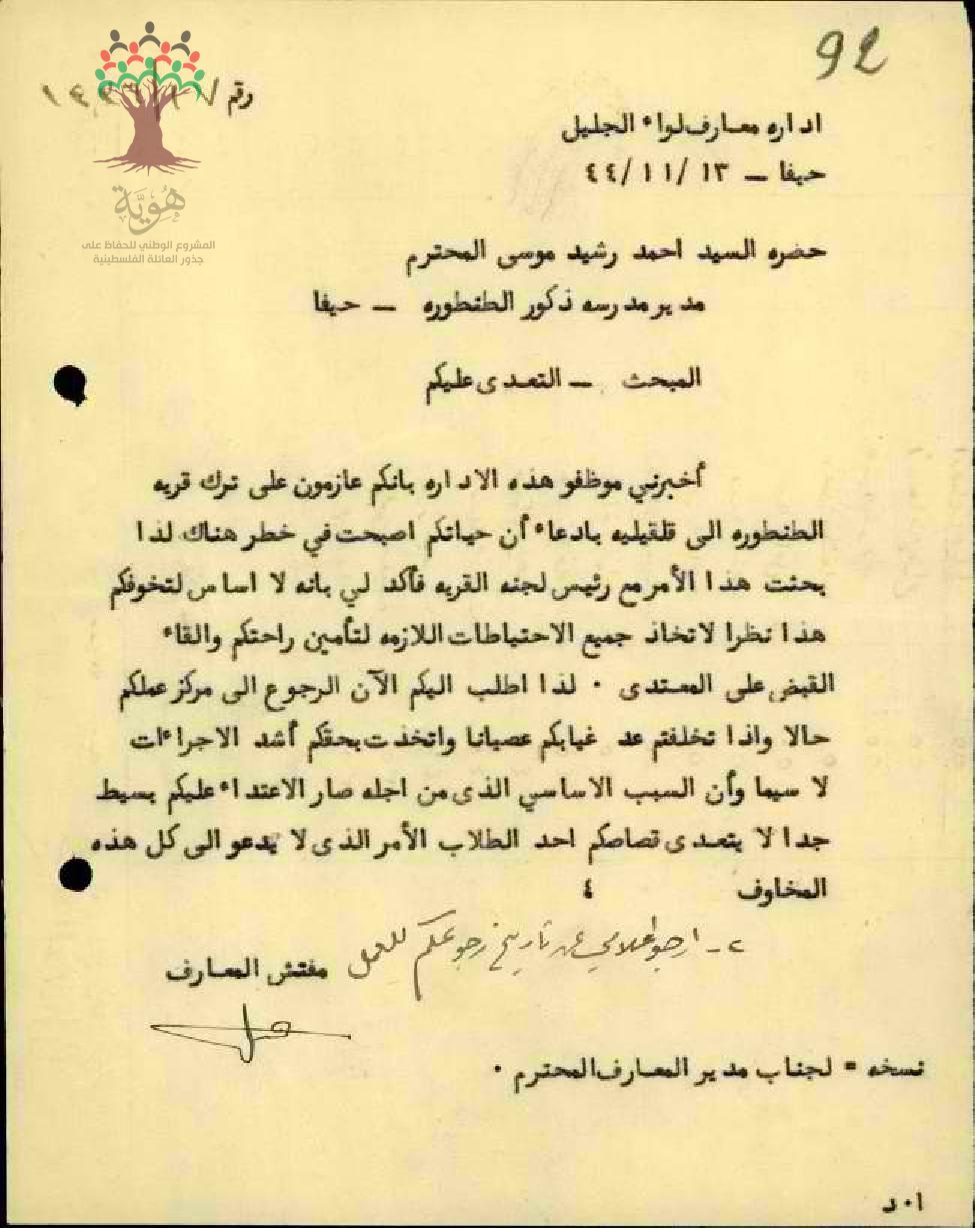 92
رقم
اداره معارف لواء الجليل
حيفا — ١٣ /١١ /٤٤
هُويَّة
المشروع الوطني للحفاظ على
جذور العائلة الفلسطينية
حضره السيد احمد رشيد موسى المحترم
مدير مدرسه ذكور الطنطوره — حيفا
المبحث — التعدى عليكم
أخبرني موظفو هذه الاداره بانكم عازمون على ترك قريه
الطنطوره الى قلقيليه بادعاء أن حياتكم اصبحت في خطر هناك لذا
بحثت هذا الأمر مع رئيس لجنه القريه فأكد لي بانه لا اساس لتخوفكم
هذا نظرا لاتخاذ جميع الاحتياطات اللازمه لتأمين راحتكم والقاء
القبض على المعتدى · لذا اطلب اليكم الآن الرجوع الى مركز عملكم
حالا واذا تخلفتم عد غيابكم عصيانا واتخذت بحقكم أشد الاجراءات
لا سيما وأن السبب الاساسي الذى من اجله صار الاعتداء عليكم بسيط
جدا لا يتعدى قصاصكم احد الطلاب الأمر الذى لا يدعو الى كل هذه
المخاوف ٤
٢ - ارجو اعلامي عن تاريخ رجوعكم للعمل
مفتش المعارف
نسخه = لجناب مدير المعارف المحترم ·
ا٠د